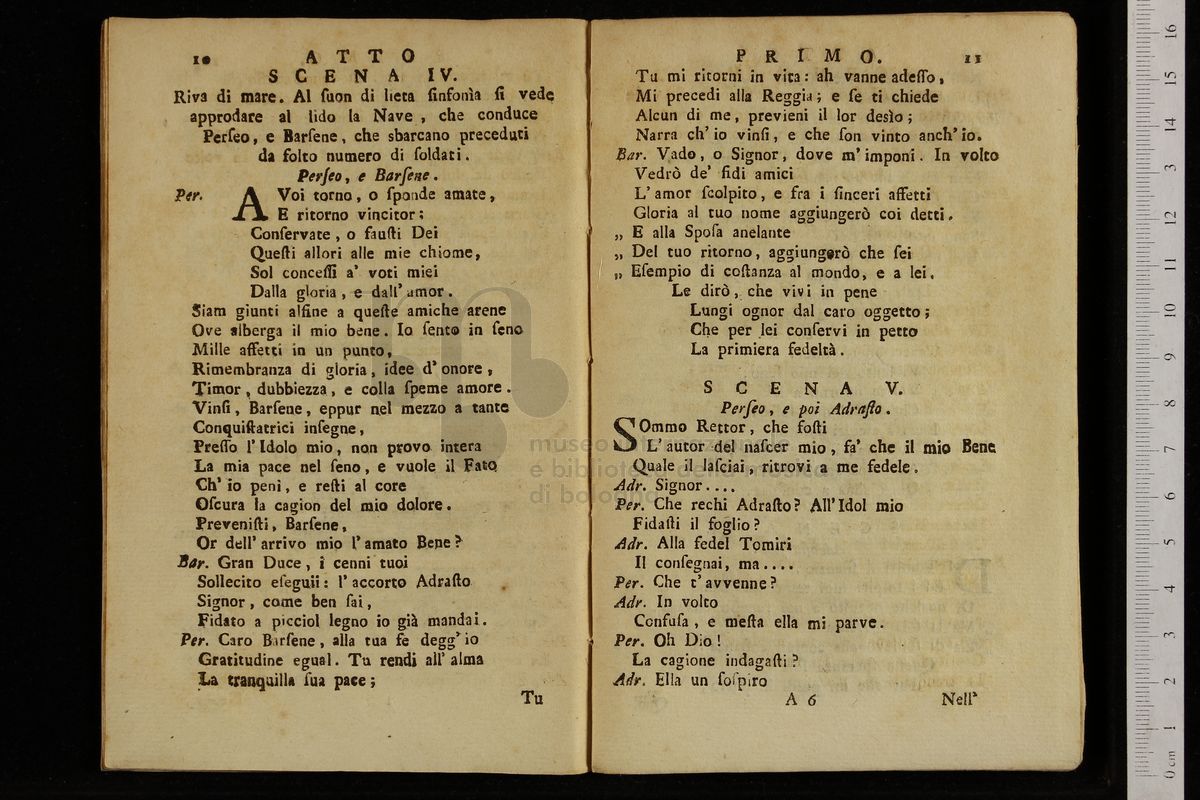 10 ATTO
SCENA IV.
Riva di mare. Al ſuon di lieta ſinfonìa ſi vede
approdare al lido la Nave, che conduce
Perſeo, e Barſene, che sbarcano preceduti
da folto numero di ſoldati.
Perſeo, e Barſene.
Per. A Voi torno, o ſponde amate,
E ritorno vincitor;
Conſervate, o fauſti Dei
Queſti allori alle mie chiome,
Sol conceſſi a' voti miei
Dalla gloria, e dall' amor.
Siam giunti alfine a queſte amiche arene
Ove alberga il mio bene. Io ſento in ſeno
Mille affetti in un punto,
Rimembranza di gloria, idee d' onore,
Timor, dubbiezza, e colla ſpeme amore.
Vinſi, Barſene, eppur nel mezzo a tante
Conquiſtatrici inſegne,
Preſſo l' Idolo mio, non provo intera
La mia pace nel ſeno, e vuole il Fato
Ch' io peni, e reſti al core
Oſcura la cagion del mio dolore.
Preveniſti, Barſene,
Or dell' arrivo mio l' amato Bene?
Bar. Gran Duce, i cenni tuoi
Sollecito eſeguii: l' accorto Adraſto
Signor, come ben ſai,
Fidato a picciol legno io già mandai.
Per. Caro Barſene, alla tua fe degg' io
Gratitudine egual. Tu rendi all' alma
La tranquilla ſua pace;
Tu
PRIMO. 11
Tu mi ritorni in vita: ah vanne adeſſo,
Mi precedi alla Reggia; e ſe ti chiede
Alcun di me, previeni il lor desìo;
Narra ch' io vinſi, e che ſon vinto anch' io.
Bar. Vado, o Signor, dove m' imponi. In volto
Vedrò de' fidi amici
L' amor ſcolpito, e fra i ſinceri affetti
Gloria al tuo nome aggiungerò coi detti.
„ E alla Spoſa anelante
„ Del tuo ritorno, aggiungerò che ſei
„ Eſempio di coſtanza al mondo, e a lei.
Le dirò, che vivi in pene
Lungi ognor dal caro oggetto;
Che per lei conſervi in petto
La primiera fedeltà.
SCENA V.
Perſeo, e poi Adraſto.
SOmmo Rettor, che foſti
L' autor del naſcer mio, fa' che il mio Bene
Quale il laſciai, ritrovi a me fedele.
Adr. Signor....
Per. Che rechi Adraſto? All' Idol mio
Fidaſti il foglio?
Adr. Alla fedel Tomiri
Il conſegnai, ma....
Per. Che t' avvenne?
Adr. In volto
Confuſa, e meſta ella mi parve.
Per. Oh Dio!
La cagione indagaſti?
Adr. Ella un ſoſpiro
A 6 Nell'
museo internazionale
e biblioteca della musica
di bologna
0 cm 1 2 3 4 5 6 7 8 9 10 11 12 13 14 15 16